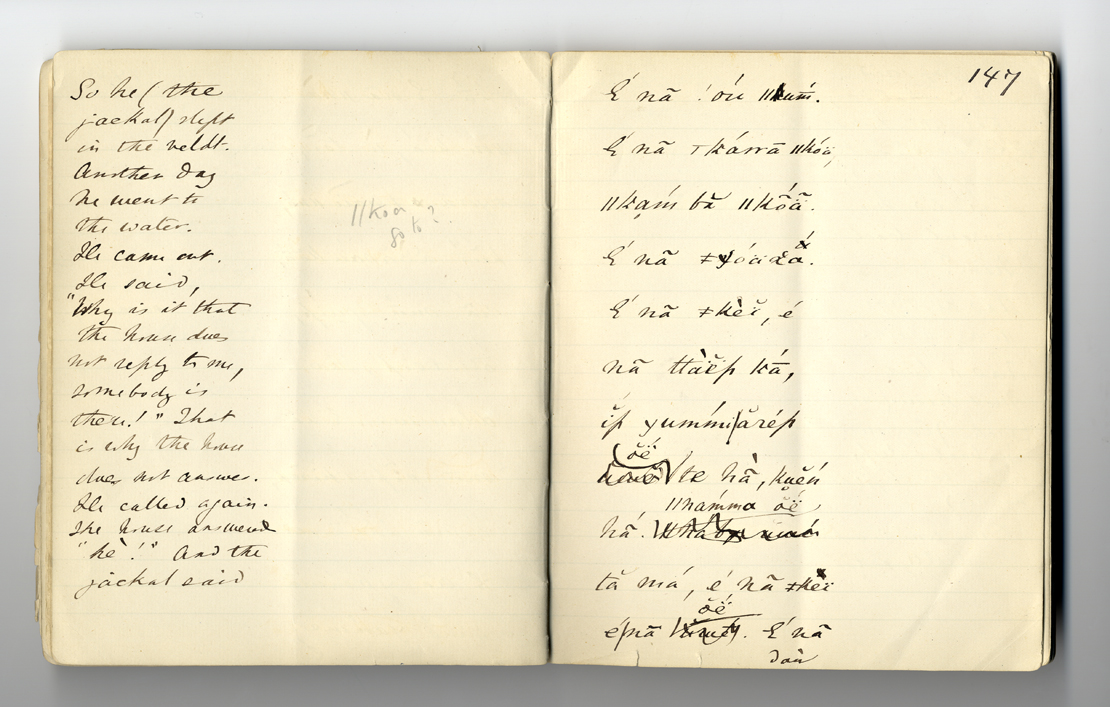 So he (the
jackal) slept
in the veldt.
Another day
he went to
the water.
He came out.
He said,
"Why is it that
the house does
not reply to me,
somebody is
there!" That
is why the house
does not answer.
He called again.
The house answered
"hè!" And the
jackal said
ǁkoa
go to?
147
É nā ǃóu ǁkaḿ.
É nā ⊤kárrā ǁkóä,
ǁkaḿ bā ǁkȭä.
É nā
É nā ǂkèï, é
nā ttàĕp ká,
ĭp yummi ărép
ŏë́ te hà, kuĕń
ǁnámma ŏë́
há.
tă má, é nā ǂkèï
ŏë́
épnā É nā
daü